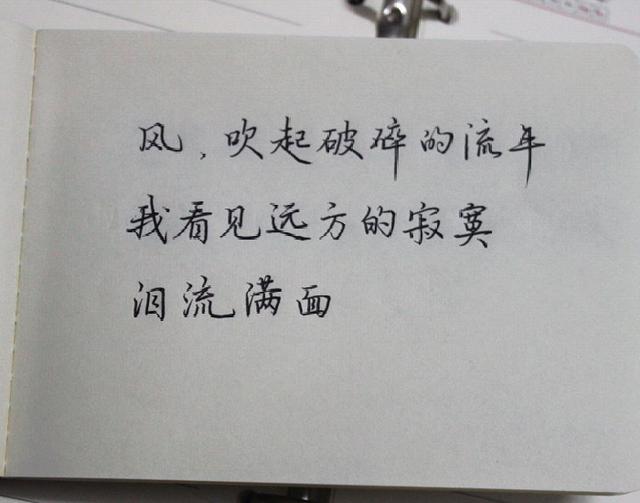 风，吹起破碎的流年
我看见远方的寂寞
泪流满面